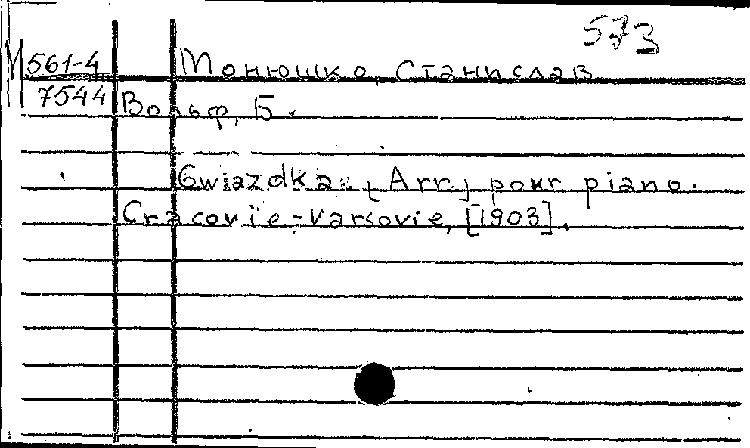 573
М 561-4 Монюшко, Станислав
7544 Вольф, Б.
Gwiazdka. [Arr.] pour piano.
Cracovie-Varsovie, [1903].